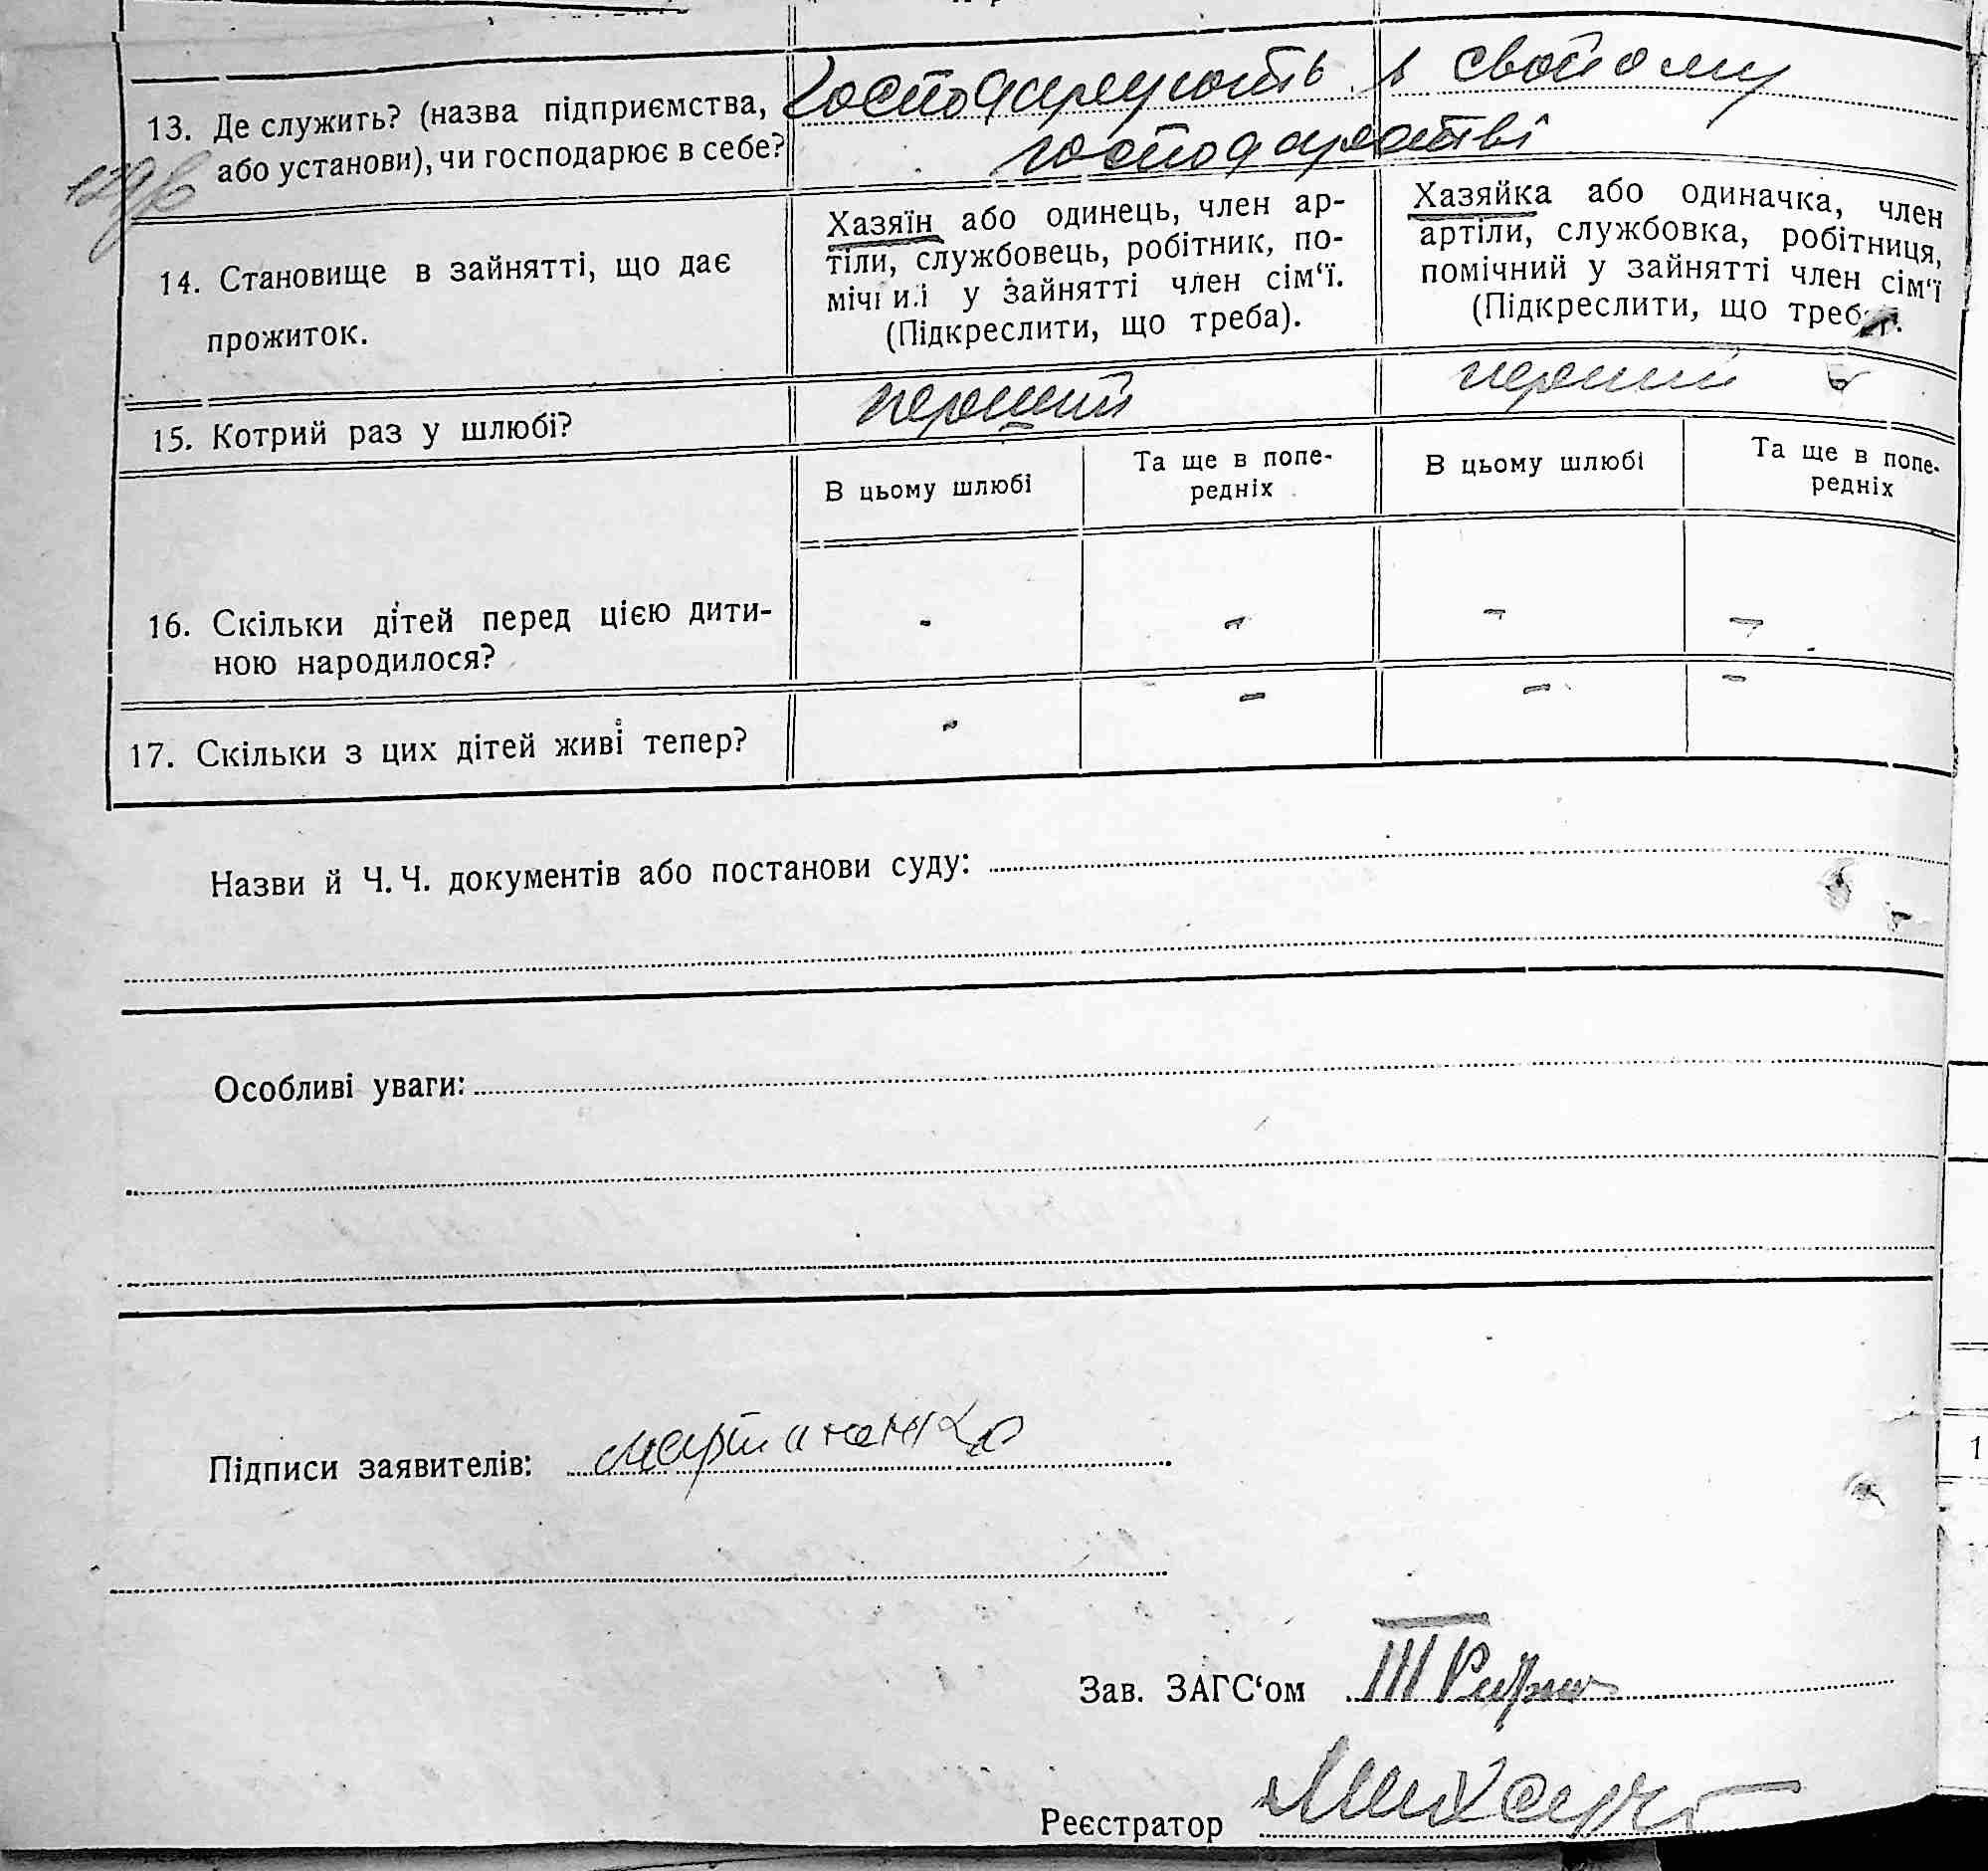 Господарюють в свойому
13. Де служить? (назва підприємства,
або установи), чи господарює в себе?
господарстві
14. Становище в зайнятті, що дає
прожиток.
Хазяїн або одинець, член ар-
тіли, службовець, робітник, по-
мічний у зайнятті член сім‘ї.
(Підкреслити, що треба).
Хазяйка або одиначка, член
артіли, службовка, робітниця,
помічний у зайнятті член сім‘ї
(Підкреслити, що треба).
15. Котрий раз у шлюбі?
перший
перший
В цьому шлюбі
Та ще в попе-
редніх
В цьому шлюбі
Та ще в попе-
редніх
16. Скільки дітей перед цією дити-
ною народилося?
- - - -
17. Скільки з цих дітей живі тепер?
- - - -
Назви й Ч. Ч. документів або постанови суду:
Особливі уваги:
Підписи заявителів:
Зав. ЗАГС‘ом
Реєстратор
1